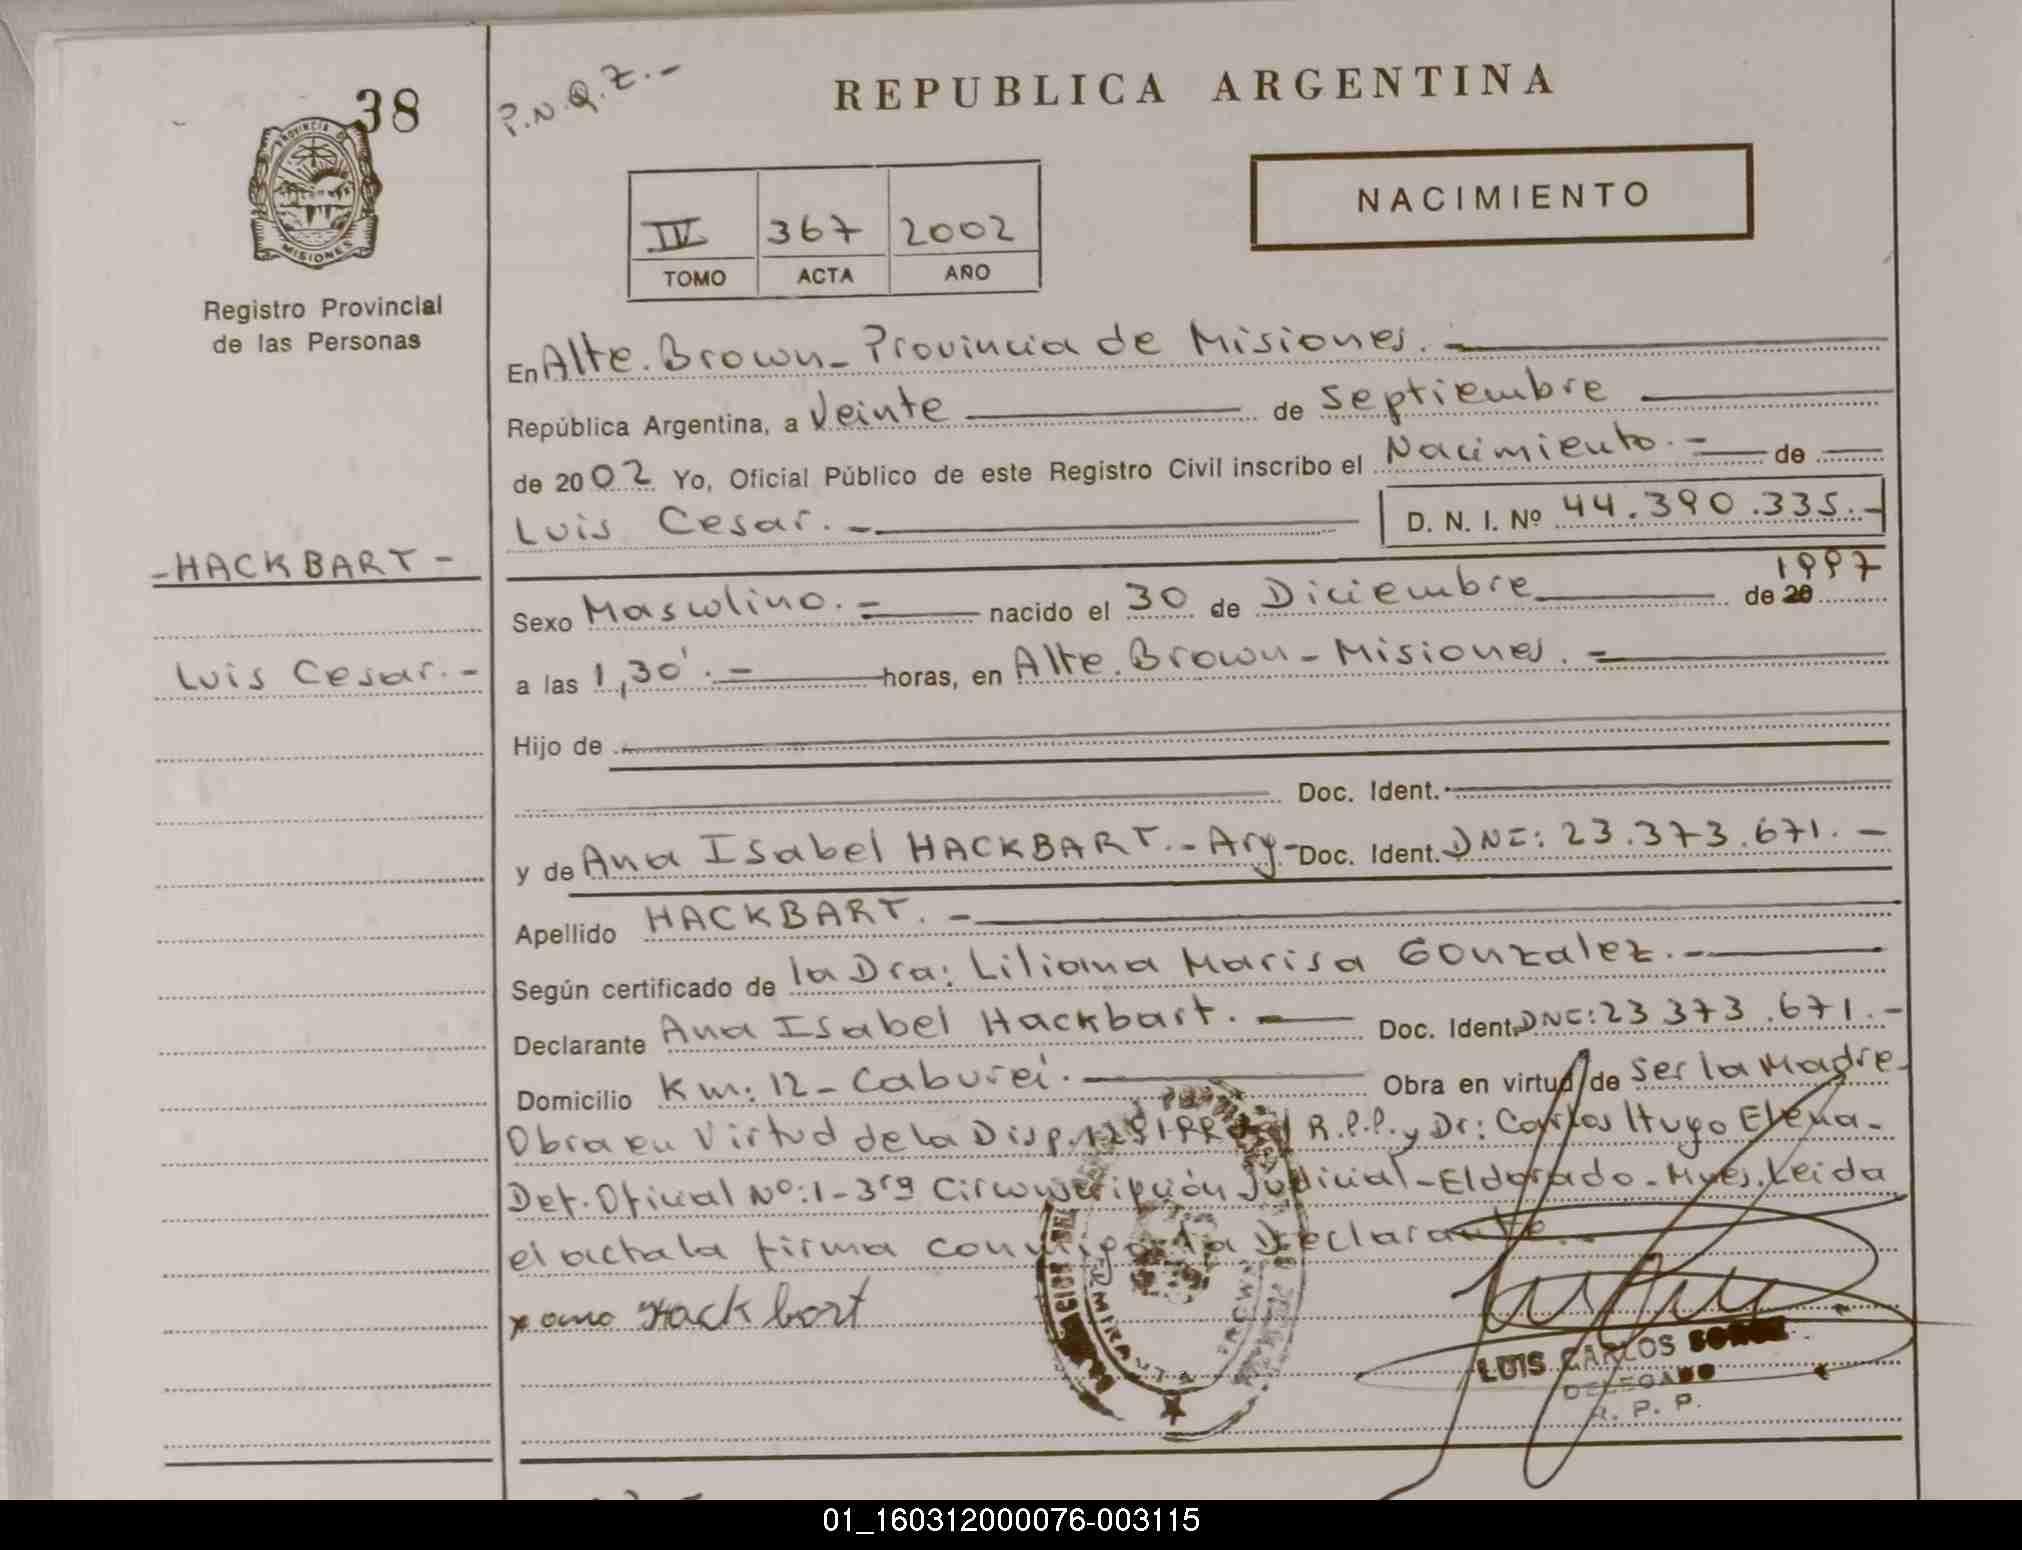 38
P.N.Q.Z.-
REPUBLICA ARGENTINA
PROVINCIA DE
MISIONES
Registro Provincial
de las Personas
IV 367 2002
TOMO ACTA AÑO
NACIMIENTO
En Alte. Brown - Provincia de Misiones.
República Argentina, a Veinte de Septiembre
de 2002 Yo, Oficial Público de este Registro Civil inscribo el Nacimiento.- de
Luis Cesar.- D. N. I. Nº 44.390.335.-
-HACKBART-
Luis Cesar.-
Sexo Masculino.= nacido el 30 de Diciembre de 20 1997
a las 1,30'.- horas, en Alte. Brown - Misiones.=
Hijo de
Doc. Ident.
y de Ana Isabel HACKBART.-Arg- Doc. Ident. DNI: 23.373.671.-
Apellido HACKBART.-
Según certificado de la Dra: Liliana Marisa Gonzalez.-
Declarante Ana Isabel Hackbart.- Doc. Ident. DNI: 23 373.671.-
Domicilio Km: 12 - Caburei. Obra en virtud de Ser la Madre-
Obra en Virtud de la Disp. R.P.P. y Dr: Carlos Hugo Elena-
Def. Oficial Nº: 1 - 3ra Circunscripción Judicial - Eldorado - Mnes. Leida
el acta la firma conmigo la Declarante.-
x ana Hackbart
LUIS CARLOS
DELEGADO
R. P. P.
01_160312000076-003115